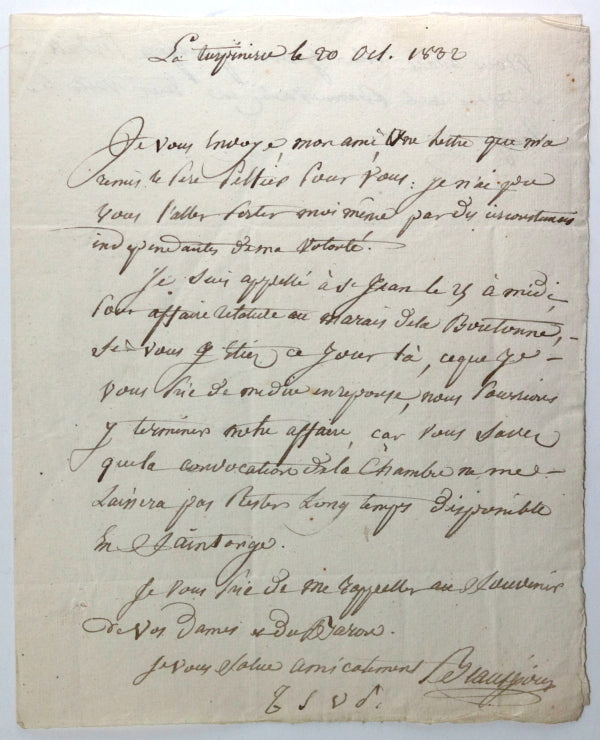 La turpiniere le 20 Oct. 1832
Je vous Envoye, mon ami, Une Lettre que m'a
remis le Pere Peltier Pour Vous; je n'ai peu
vous l'aller Porter moi même par des circonstances
independantes de ma Volonté.
Je suis appellé à St Jean le 25 à midi,
Pour affaire relative au marais de la Boutonne,
Si vous y Etiez ce jour là, ce que je
vous Prie de me dire en reponse, nous Pourrions
y terminer notre affaire, car vous Savez
que la convocation de la Chambre ne me
Laissera pas Rester Long temps disponible
En Saintonge.
Je vous Prie de me rappeller au Souvenir
de vos Dames & du Baron.
Je vous Salue amicalement
T S V P.